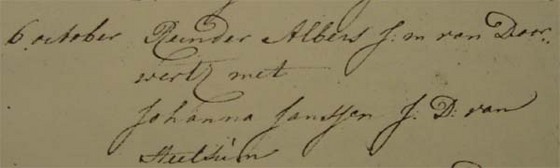 6 october Reinder Albers j: m van Door,
wertz met
Johanna Janssen J: D: van
Heelsum